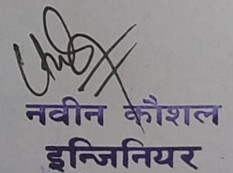 नवीन कौशल
इन्जिनियर